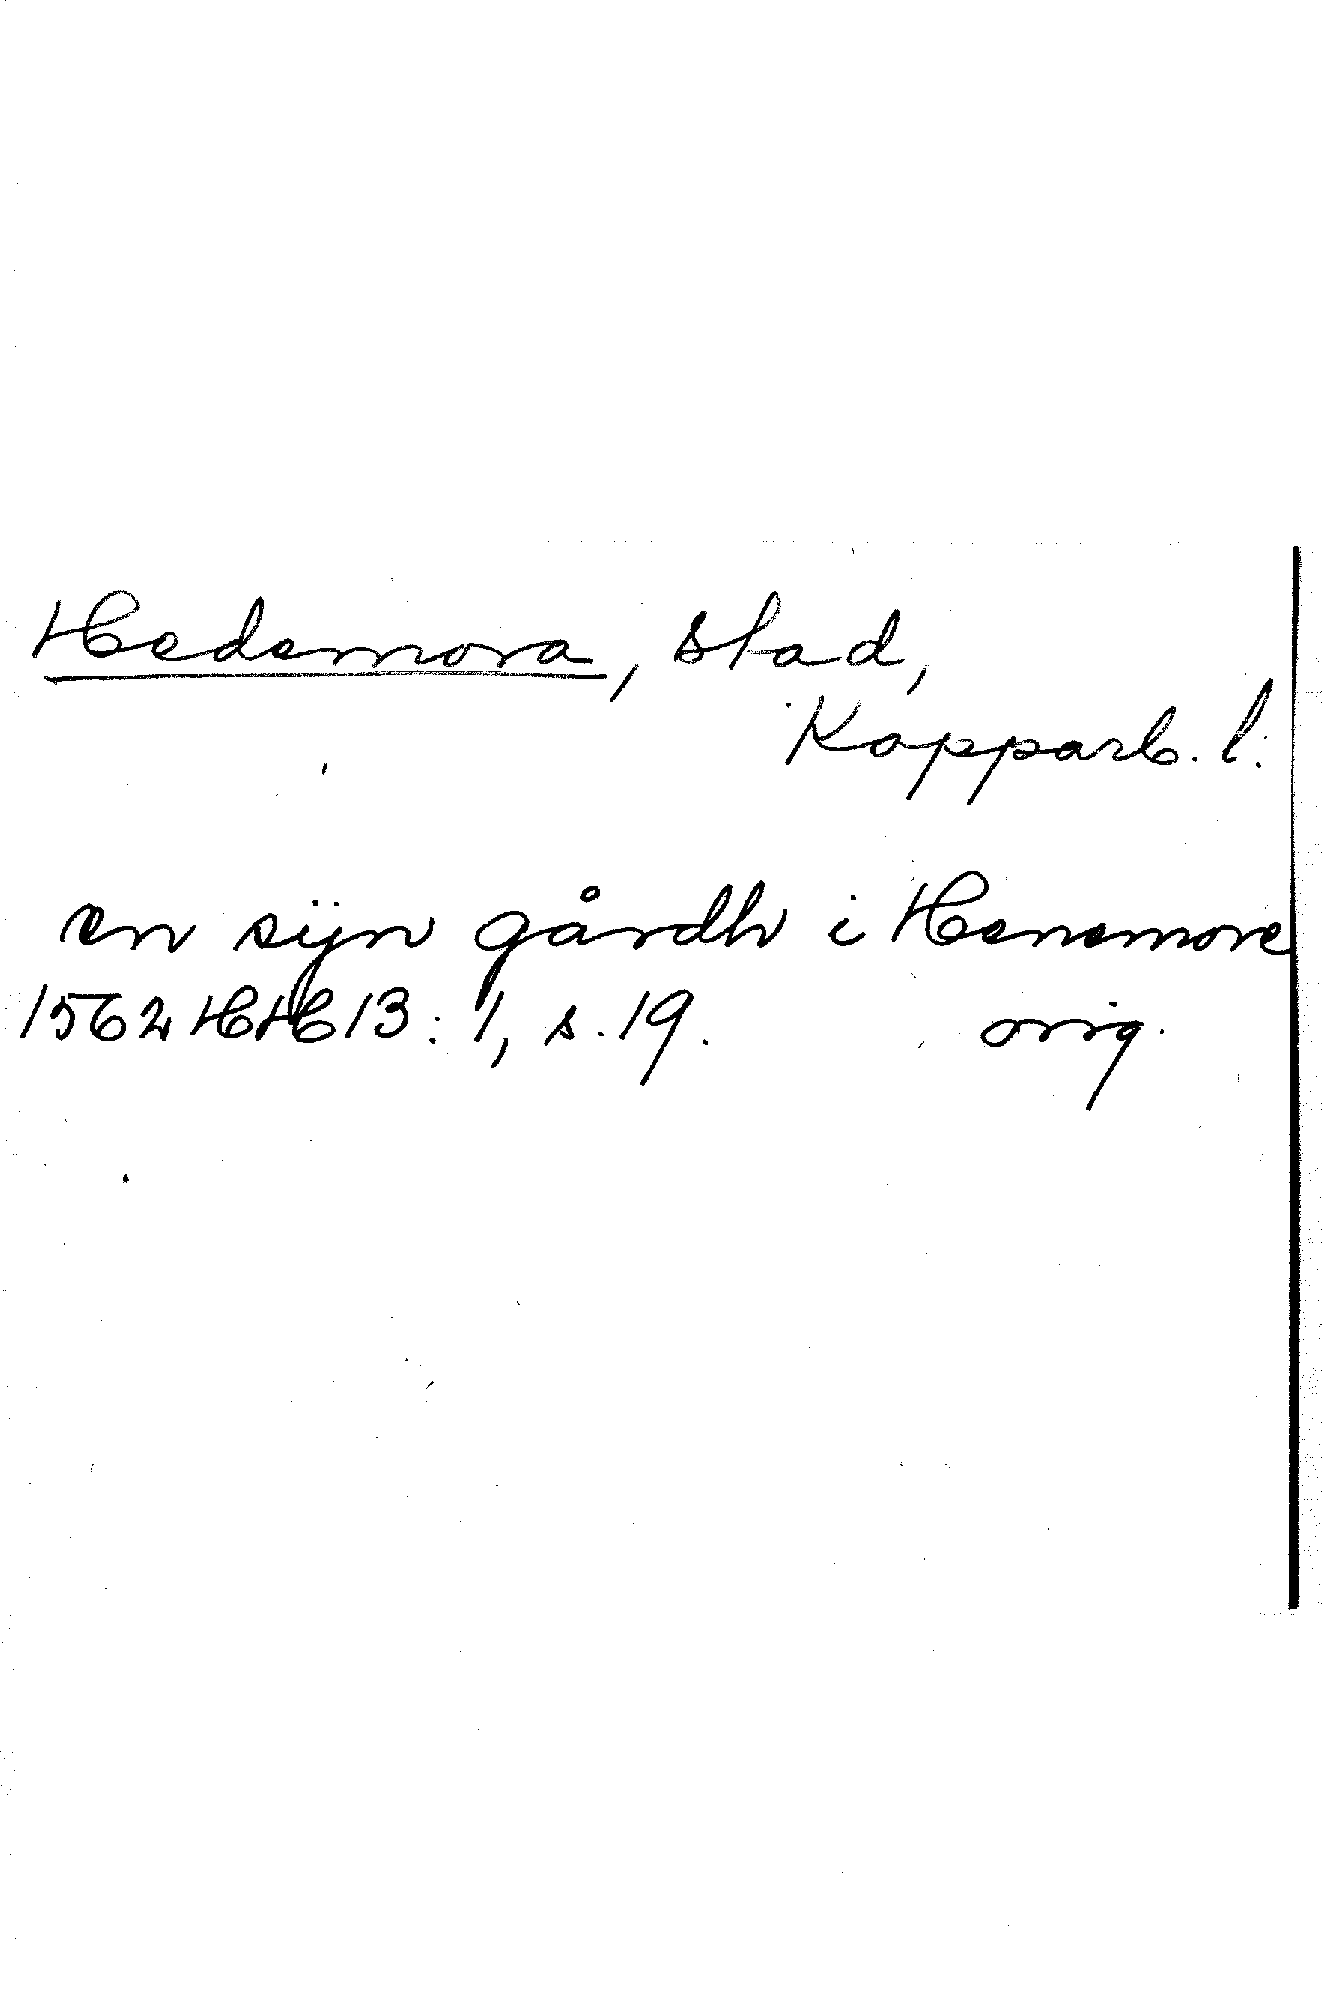 Hedemora, stad,
Kopparb. l.
en sÿn gårdh i Henemore
1562 HH 13:1, s. 19. orig.